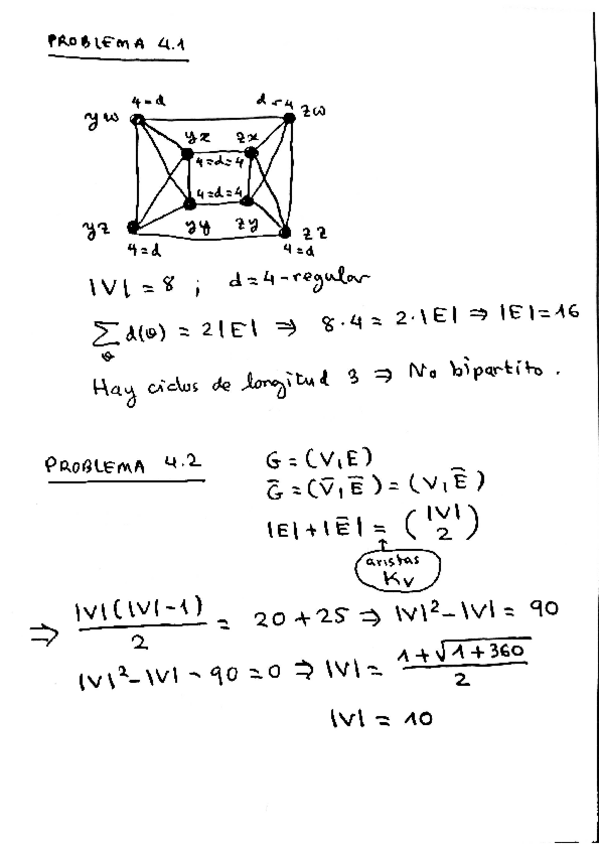 PROBLEMA 4.1
4=d d=4
yw zw
yx zx
4=d=4
4=d=4
yz yy zy zz
4=d 4=d
|V| = 8 ; d=4-regular
∑ d(v) = 2|E| ⇒ 8·4 = 2·|E| ⇒ |E|=16
v
Hay ciclos de longitud 3 ⇒ No bipartito.
PROBLEMA 4.2 G = (V,E)
G̅ = (V̅,E̅) = (V,E̅)
|E|+|E̅| = (|V| 2)
↑
aristas
K_V
⇒ |V|(|V|-1)/2 = 20+25 ⇒ |V|²-|V| = 90
|V|²-|V|-90=0 ⇒ |V| = (1+√(1+360))/2
|V| = 10